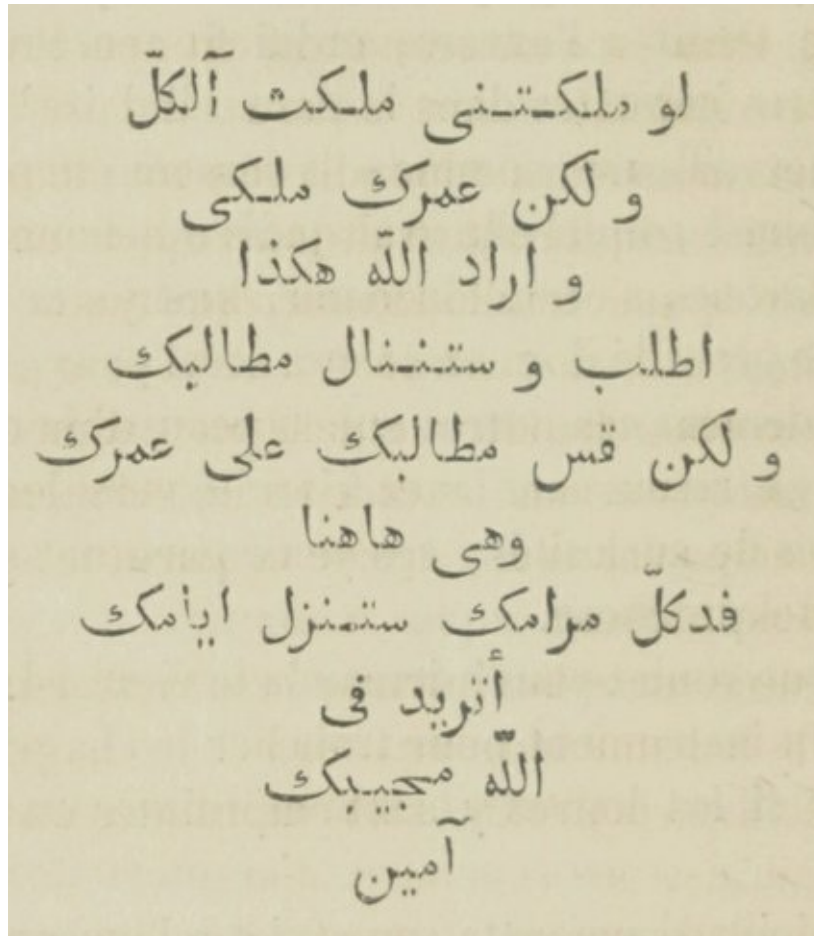 لو ملكـتـنى ملـكت آلكلّ
و لكن عمرك ملـكى
و اراد اللّه هكذا
اطلب و ستـنـنال مطالبك
و لكن قس مطالبك على عمرك
وهى هاهنا
فدكلّ مرامك ستـنزل ايامك
أتريد فى
اللّه مجيبك
آمين